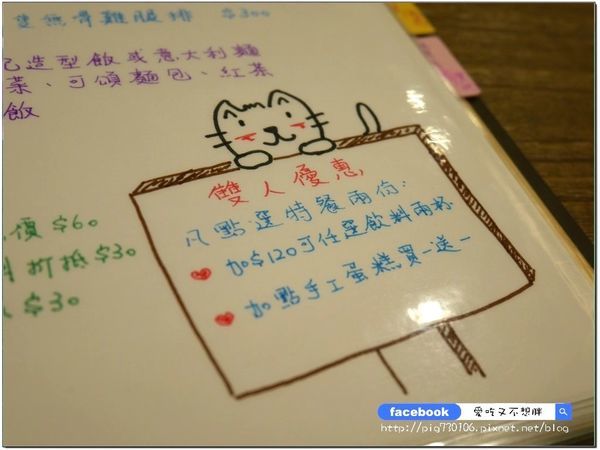 隻無骨雞腿排 $300
己造型飯或意大利麵
菜、可頌麵包、紅茶
飯
雙人優惠
凡點選特餐兩份:
加$120可任選飲料兩杯
加點手工蛋糕買一送一
價$60
折抵$30
$30
facebook 愛吃又不想胖
http://pig730106.pixnet.net/blog